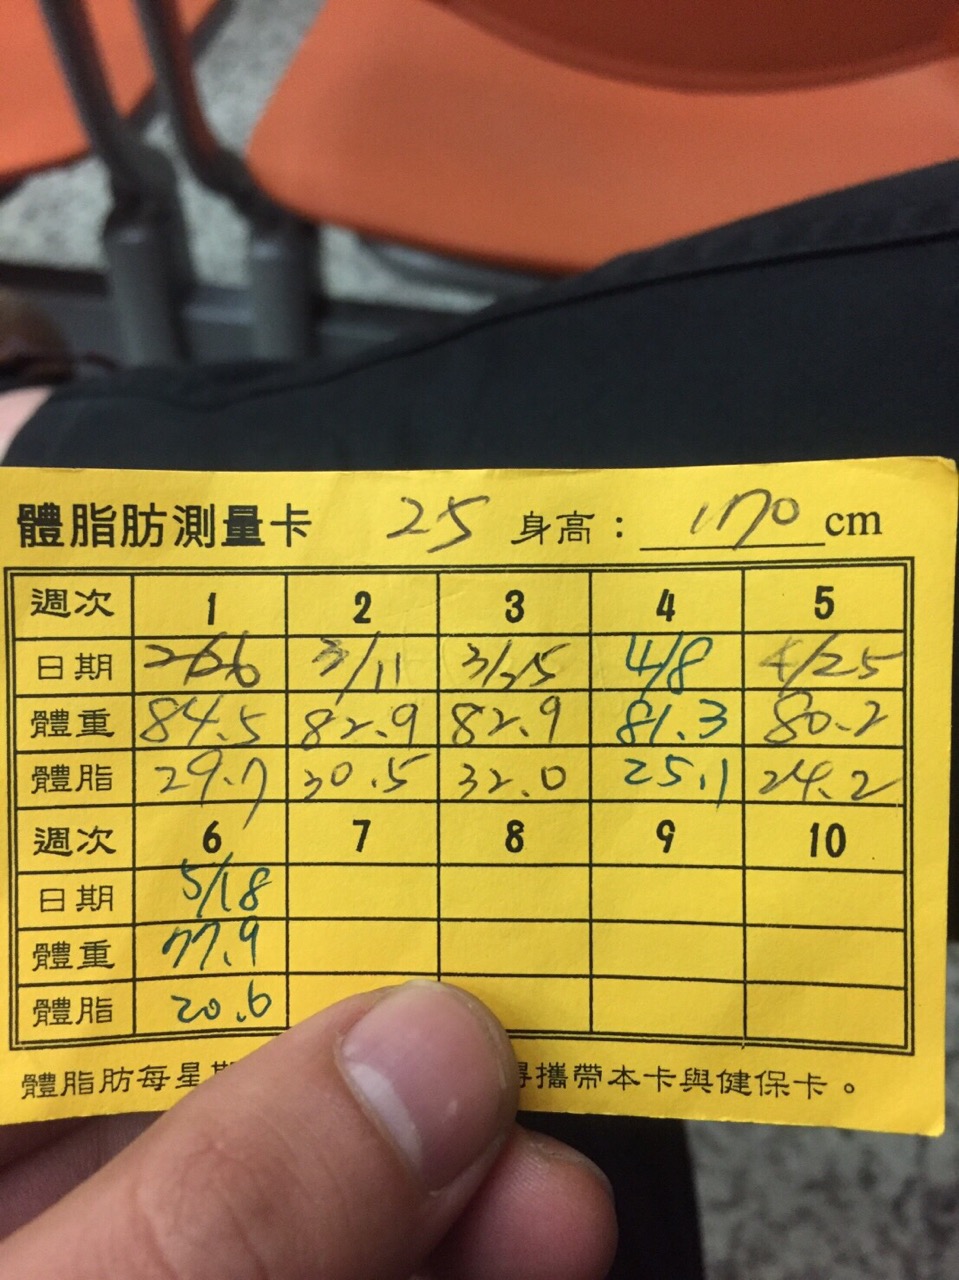 體脂肪測量卡 25 身高：170cm
週次 1 2 3 4 5
日期 3/11 3/25 4/8 4/25
體重 84.5 82.9 82.9 81.3 80.2
體脂 29.7 30.5 32.0 25.1 24.2
週次 6 7 8 9 10
日期 5/18
體重 77.9
體脂 20.6
體脂肪每星 攜帶本卡與健保卡。